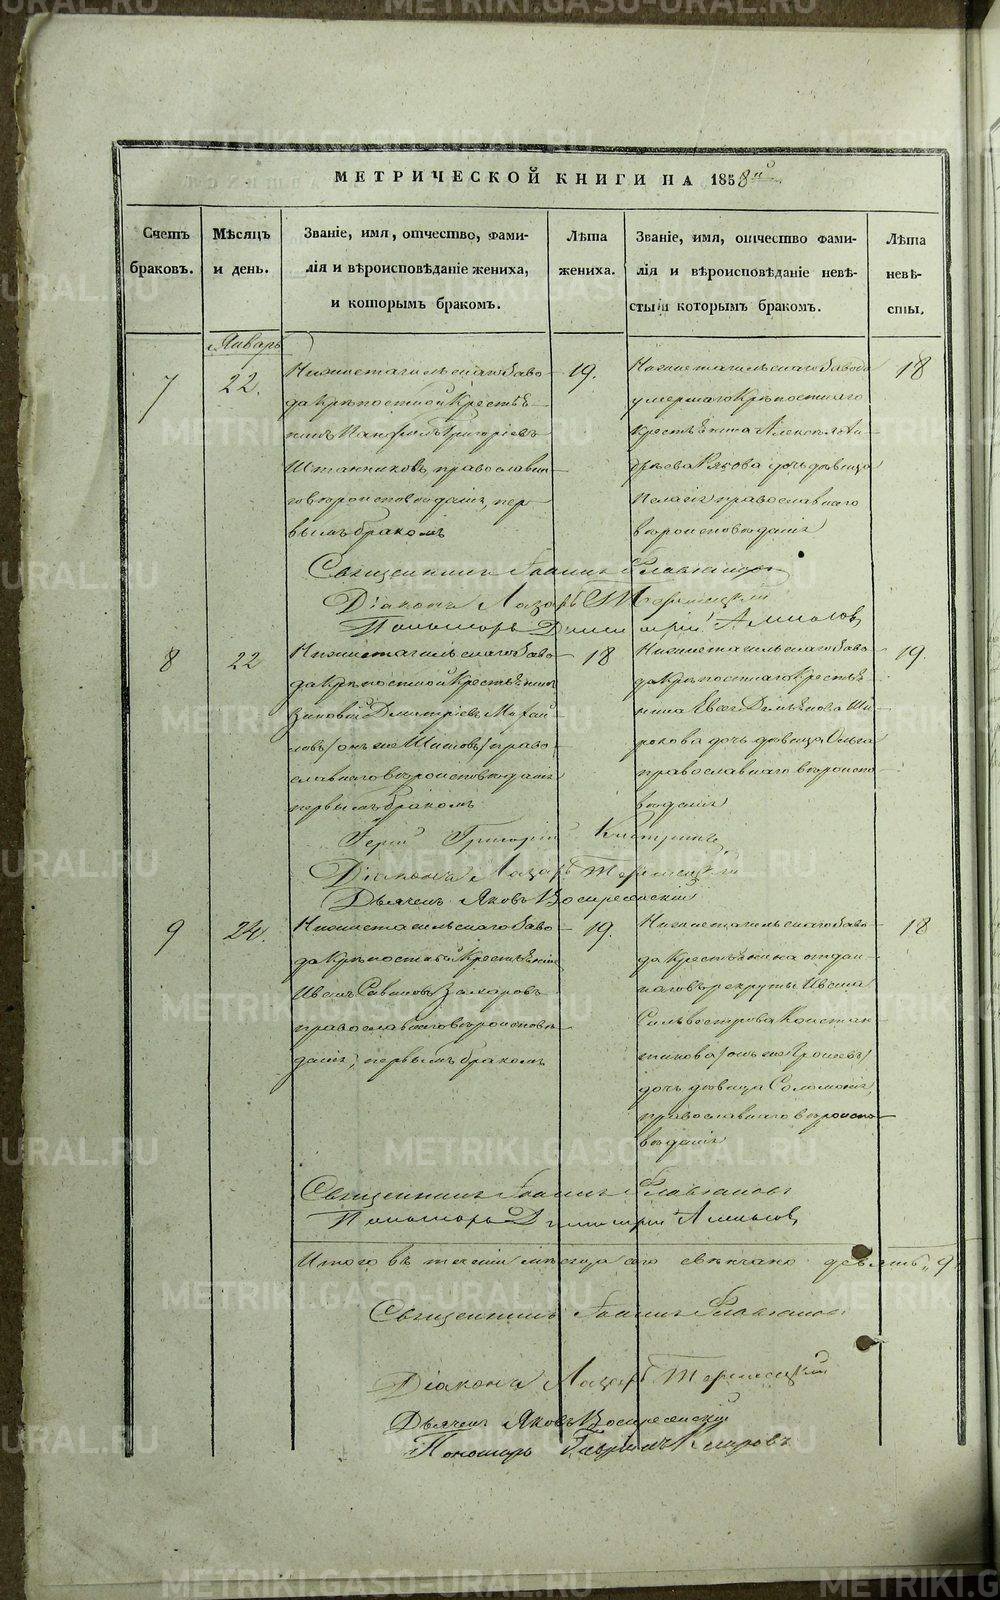 МЕТРИЧЕСКОЙ КНИГИ НА 1858й
Счетъ браковъ.
Мѣсяцъ и день.
Званіе, имя, отчество, фами-
лія и вѣроисповѣданіе жениха,
и которымъ бракомъ.
Лѣта жениха.
Званіе, имя, отчество фами-
лія и вѣроисповѣданіе невѣ-
сты и которымъ бракомъ.
Лѣта невѣ-
сты.
Январь
7
22.
Нижнетагильскаго Заво-
да Крѣпостной Крестья-
нинъ Панфилъ Григоріевъ
Штанниковъ, православна-
го вѣроисповѣданія, пер-
вымъ бракомъ
19.
Нижнетагильскаго Завода
умершаго Крѣпостнаго
Крестьянина Алексѣя Ан-
дреева дочь дѣвица
Пелагія православнаго
вѣроисповѣданія
18
Священникъ Іоаннъ
Діаконъ Лазарь
Пономарь Димитрій
8
22
Нижнетагильскаго Заво-
да Крѣпостной Крестьянинъ
Зиновій Димитріевъ Михай-
ловъ / онъ же Шиловъ / право-
славнаго вѣроисповѣданія
первымъ бракомъ
18
Нижнетагильскаго Заво-
да Крѣпостнаго Крестья-
нина Евсѣя Демьянова Ши-
рокова дочь дѣвица Ольга
православнаго вѣроиспо-
вѣданія
19.
Іерей Григорій
Діаконъ Лазарь
Дьячекъ Яковъ Воскресенскій
9
24.
Нижнетагильскаго Заво-
да Крѣпостной Крестьянинъ
Иванъ Савиновъ Захаровъ
православнаго вѣроисповѣ-
данія, первымъ бракомъ
19.
Нижнетагильскаго Заво-
да Крестьянина отдан-
наго въ рекруты Ивана
Сильвестрова Констан-
тинова / онъ же
дочь дѣвица Соломонія,
православнаго вѣроиспо-
вѣданія
18
Священникъ Іоаннъ
Пономарь Димитрій
Итого въ теченіи мѣсяца сего свѣнчано девять „ 9.
Священникъ Іоаннъ
Діаконъ Лазарь
Дьячекъ Яковъ Воскресенскій
Пономарь Гавріилъ
METRIKI.GASO-URAL.RU